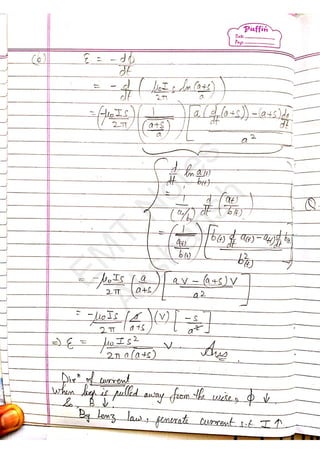 Puffin
Date
Page
(b) ε = - dϕ/dt
= - d/dt ( μ₀I/2π s ln (a+s)/a )
= (-μ₀Is/2π) ( 1/((a+s)/a) ) [ a ( d/dt (a+s) ) - (a+s) da/dt / a² ]
{ d/dt ln a(t)/b(t)
= 1/(a/b) d/dt ( a(t)/b(t) )
= ( 1/(a(t)/b(t)) ) [ b(t) d/dt a(t) - a(t) d/dt b(t) / b²(t) ]
= -μ₀Is/2π ( a/(a+s) ) [ aV - (a+s)V / a² ]
= -μ₀Is/2π ( a/(a+s) ) (V) [ -s/a² ]
⇒ ε = μ₀Is²/2πa(a+s) V Ans
Dirⁿ of current
When loop is pulled away from the wire, ϕ ↓.
So, B ↓.
By Lenz law, generate current s.t. I ↑
EMT Notes